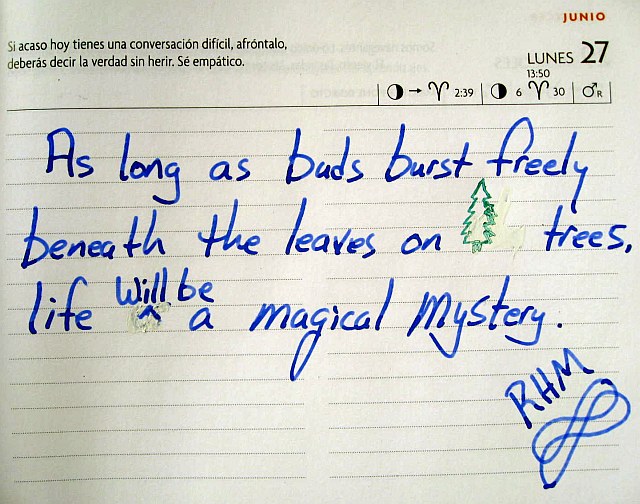 JUNIO
Si acaso hoy tienes una conversación difícil, afróntalo,
deberás decir la verdad sin herir. Sé empático.
LUNES 27
13:50
◑ → ♈ 2:39 ◑ 6 ♈ 30 ♂R
As long as buds burst freely
beneath the leaves on trees,
will be
life ^ a magical mystery.
RHM